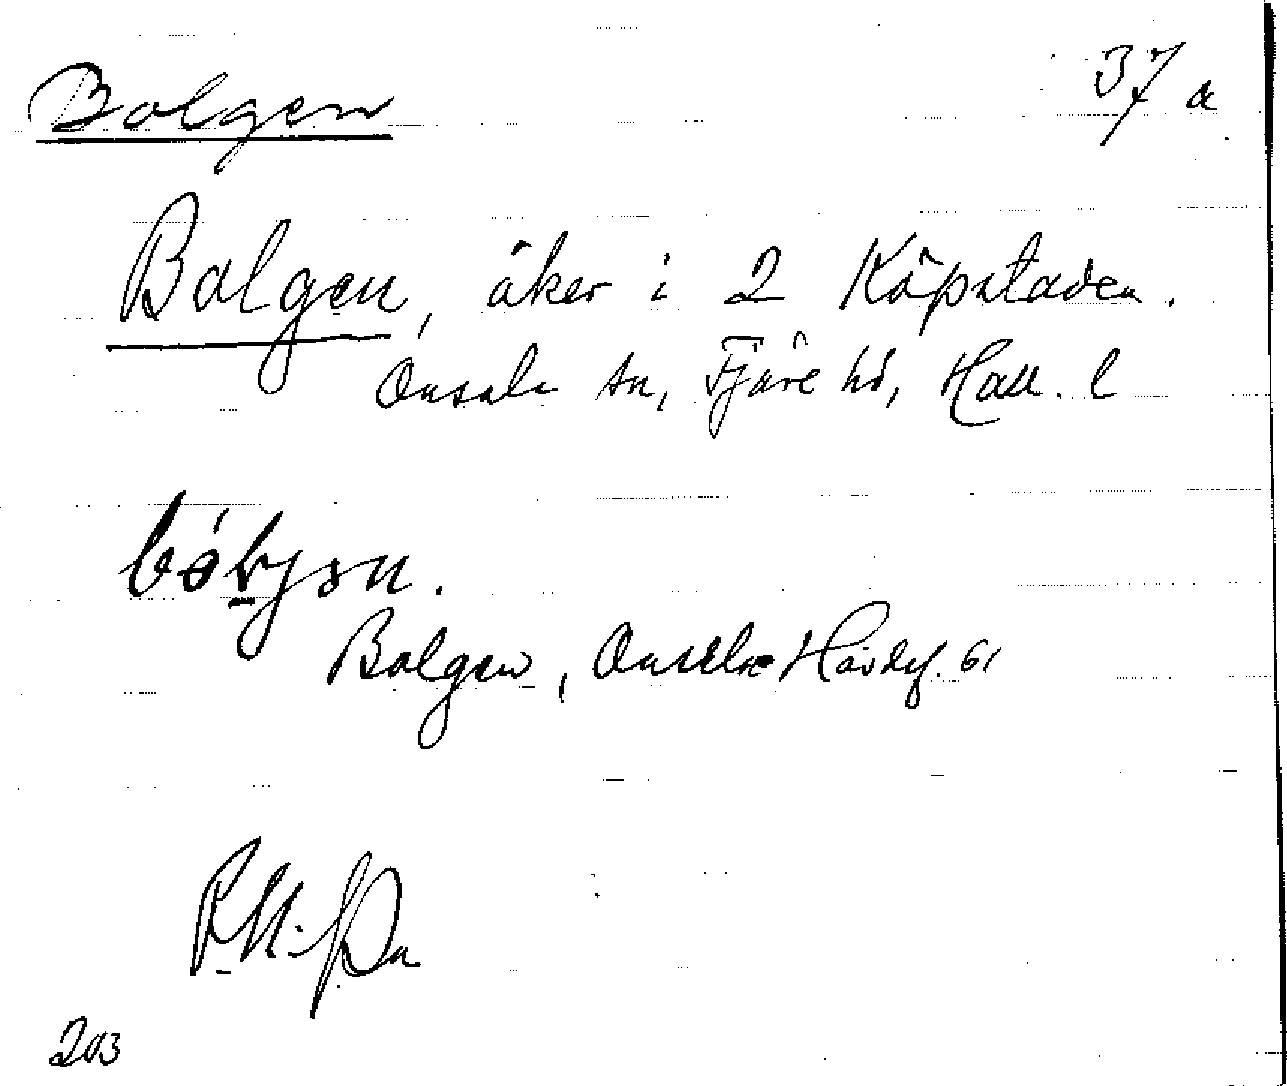 Bolgen 37 a
Bolgen, åker i 2 Köpstaden.
Onsala sn, Fjäre hd, Hall. l
Bolgen, Onsala Hävdef. 61
203